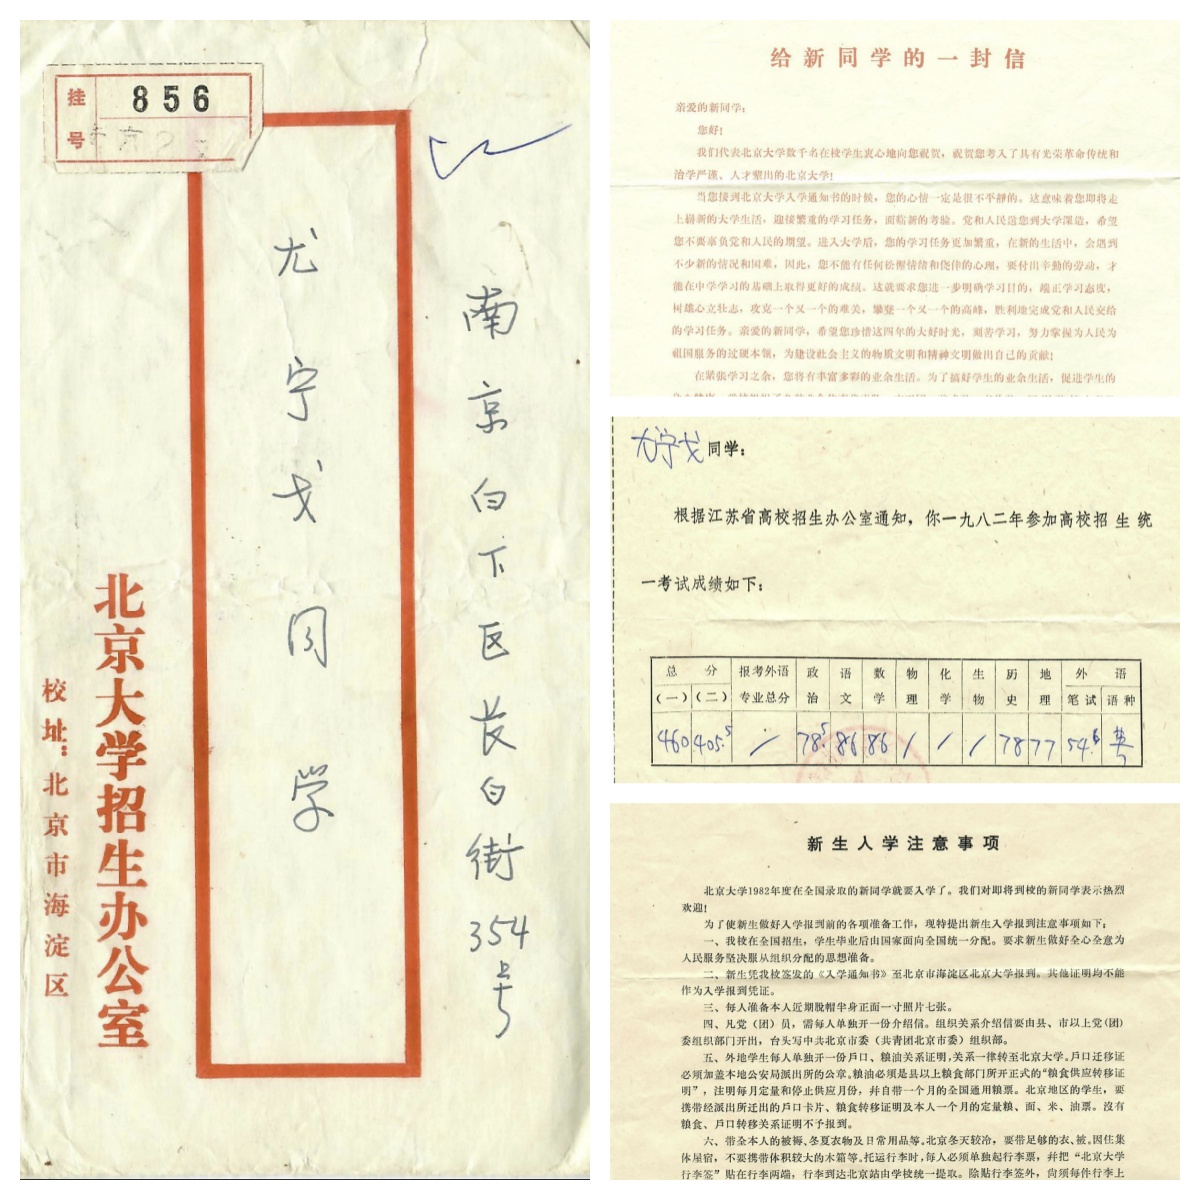 挂号
856
尤宁戈同学
南京白下区长白街354号
北京大学招生办公室
校址:北京市海淀区
给新同学的一封信
亲爱的新同学:
您好!
我们代表北京大学数千名在校学生衷心地向您祝贺,祝贺您考入了具有光荣革命传统和
治学严谨、人才辈出的北京大学!
当您接到北京大学入学通知书的时候,您的心情一定是很不平静的。这意味着您即将走
上崭新的大学生活,迎接繁重的学习任务,面临新的考验。党和人民送您到大学深造,希望
您不要辜负党和人民的期望。进入大学后,您的学习任务更加繁重,在新的生活中,会遇到
不少新的情况和困难,因此,您不能有任何松懈情绪和侥倖的心理,要付出辛勤的劳动,才
能在中学学习的基础上取得更好的成绩。这就要求您进一步明确学习目的,端正学习态度,
树雄心立壮志,攻克一个又一个的难关,攀登一个又一个的高峰,胜利地完成党和人民交给
的学习任务。亲爱的新同学,希望您珍惜这四年的大好时光,刻苦学习,努力掌握为人民为
祖国服务的过硬本领,为建设社会主义的物质文明和精神文明做出自己的贡献!
在紧张学习之余,您将有丰富多彩的业余生活。为了搞好学生的业余生活,促进学生的
尤宁戈同学:
根据江苏省高校招生办公室通知,你一九八二年参加高校招生统
一考试成绩如下:
总分 报考外语 政 语 数 物 化 生 历 地 外语
(一)(二) 专业总分 治 文 学 理 学 物 史 理 笔试 语种
460 405.5 / 78.5 86 86 / / / 78 77 54.6 英
新生入学注意事项
北京大学1982年度在全国录取的新同学就要入学了。我们对即将到校的新同学表示热烈
欢迎!
为了使新生做好入学报到前的各项准备工作,现特提出新生入学报到注意事项如下:
一、我校在全国招生,学生毕业后由国家面向全国统一分配。要求新生做好全心全意为
人民服务坚决服从组织分配的思想准备。
二、新生凭我校签发的《入学通知书》至北京市海淀区北京大学报到。其他证明均不能
作为入学报到凭证。
三、每人准备本人近期脱帽半身正面一寸照片七张。
四、凡党(团)员,需每人单独开一份介绍信。组织关系介绍信要由县、市以上党(团)
委组织部门开出,台头写中共北京市委(共青团北京市委)组织部。
五、外地学生每人单独开一份户口、粮油关系证明,关系一律转至北京大学。户口迁移证
必须加盖本地公安局派出所的公章。粮油必须是县以上粮食部门所开正式的“粮食供应转移证
明”,注明每月定量和停止供应月份,并自带一个月的全国通用粮票。北京地区的学生,要
携带经派出所迁出的户口卡片、粮食转移证明及本人一个月的定量粮、面、米、油票。没有
粮食、户口转移关系证明不予报到。
六、带全本人的被褥、冬夏衣物及日常用品等。北京冬天较冷,要带足够的衣、被。因住集
体屋宿,不要携带体积较大的木箱等。托运行李时,每人必须单独起行李票,并把“北京大学
行李签”贴在行李两端,行李到达北京站由学校统一提取。除贴行李签外,尚须每件行李上